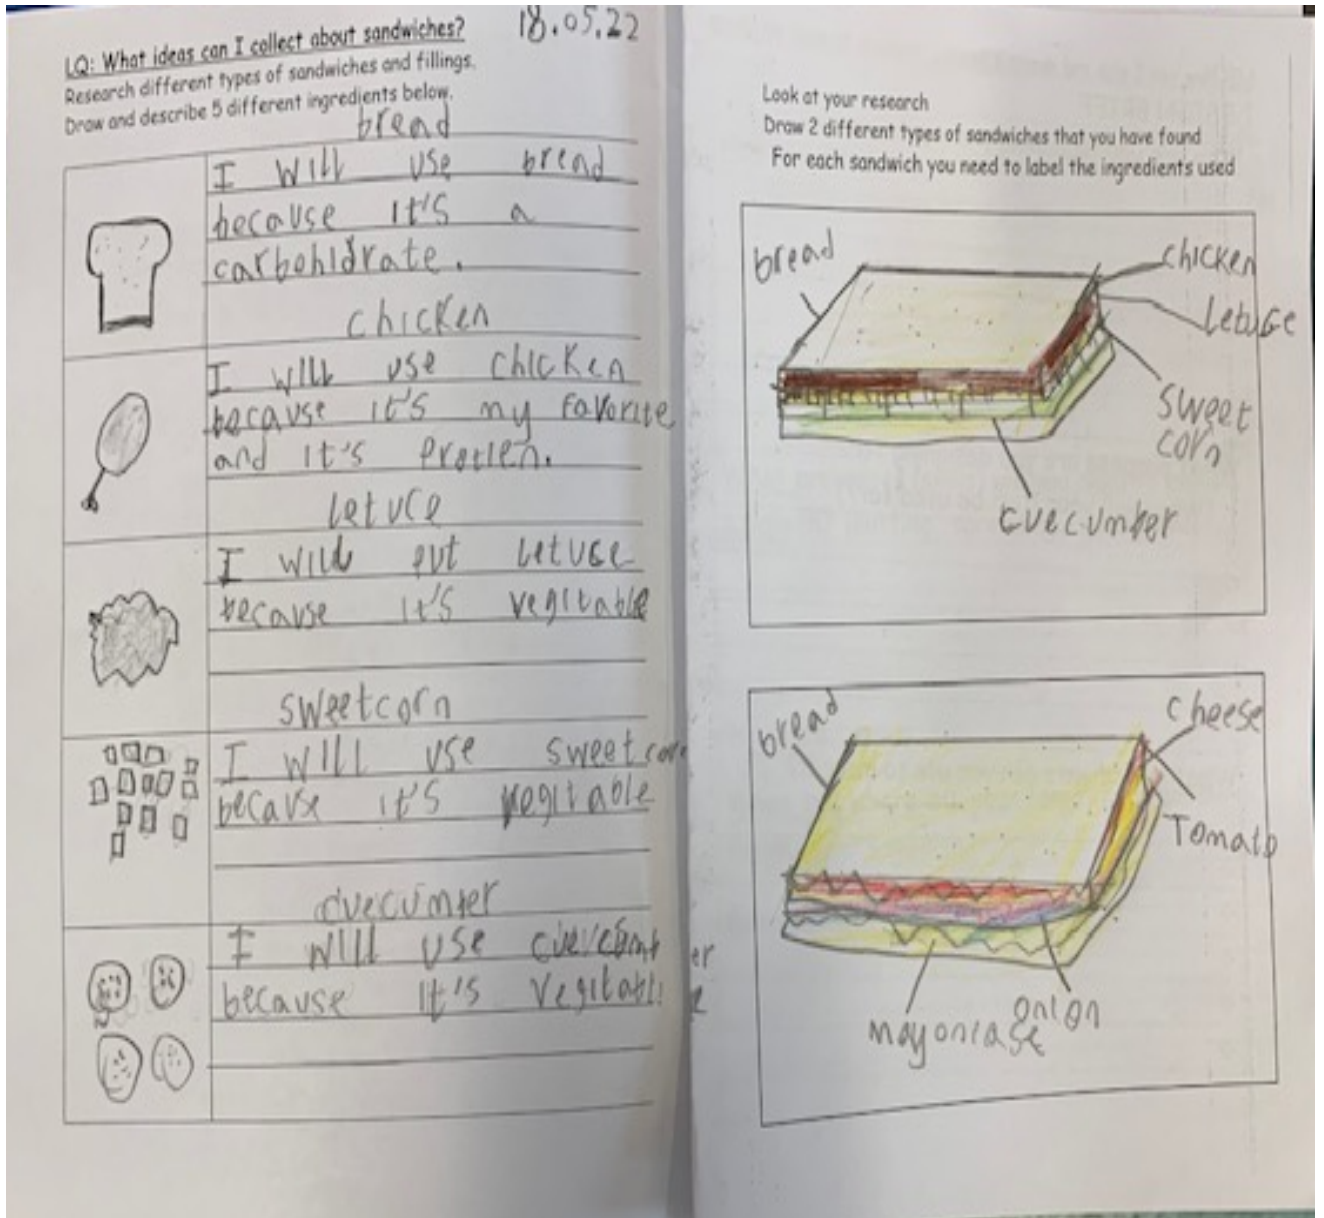 LQ: What ideas can I collect about sandwiches?
18.05.22
Research different types of sandwiches and fillings.
Draw and describe 5 different ingredients below.
bread
I will use bread
because it's a
carbohidrate.
chicken
I will use chicken
because it's my favorite
and it's protien.
letuce
I will put letuse
because it's vegitable
sweetcorn
I will use sweetcorn
because it's vegitable
cuecumber
I will use cuecumber
because it's vegitable
Look at your research
Draw 2 different types of sandwiches that you have found
For each sandwich you need to label the ingredients used
bread
chicken
letuce
sweet
corn
cuecumber
bread
cheese
Tomato
onion
mayoniase